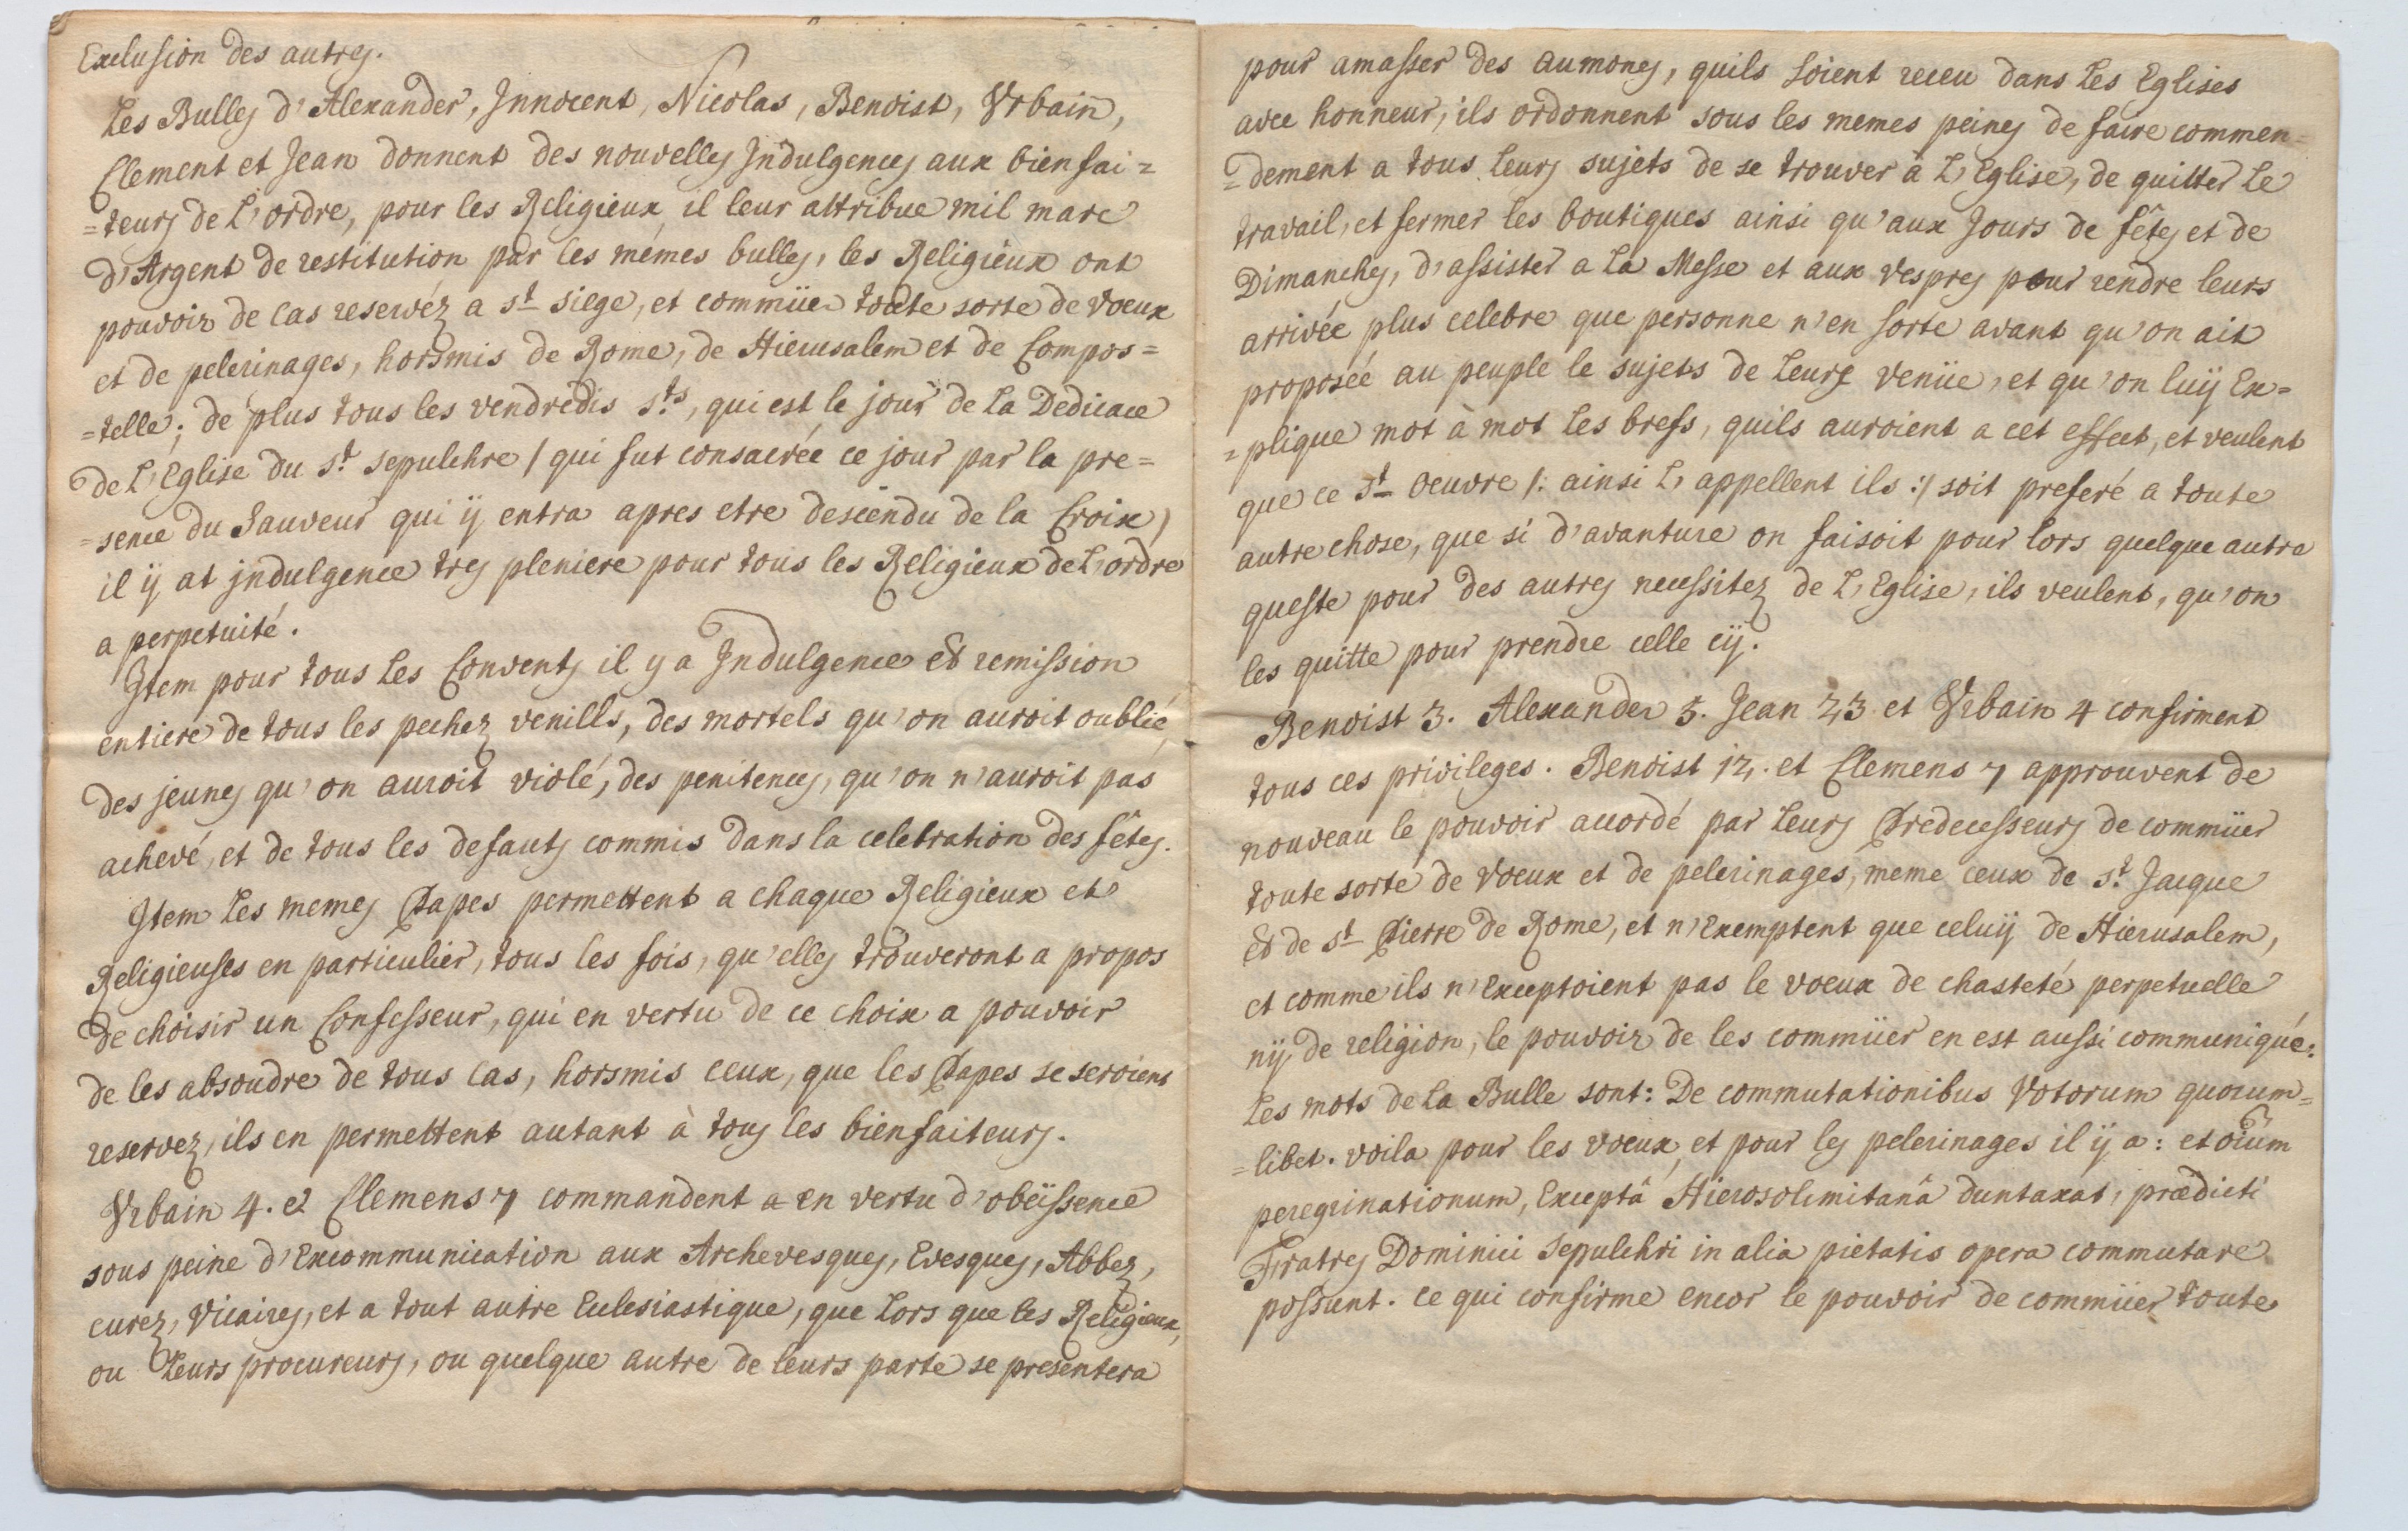 Exclusion des autres.
Les Bulles d'Alexander, Innocent, Nicolas, Benoist, Vrbain,
Clement et Jean donnent des nouvelles Indulgences aux bienfai=
=teurs de L'ordre, pour les Religieux il leur attribue mil marc
d'Argent de restitution par les mémes bulles, les Religieux ont
pouvoir de cas reservéz a st siege, et commüer toute sorte de voeux
et de pelerinages, horsmis de Rome, de Hierusalem et de Compos=
=telle; de plus tous les vendredis sts, qui est le jour de La Dedicace
de L'Eglise du st sepulchre / qui fut consacrée ce jour par la pre=
=sence du Sauveur qui ÿ entra apres etre descendu de la Croix /
il ÿ at jndulgence tres pleniere pour tous les Religieux de L'ordre
a perpetuité.
Item pour tous Les Convents il y a Indulgence et remission
entiere de tous les pechez venills, des mortels qu'on auroit oublié,
des jeunes qu'on auroit violé, des penitences, qu'on n'auroit pas
achevé, et de tous les defauts commis dans la celebration des fêtes.
Item Les memes Papes permettent a chaque Religieux et
Religieuses en particulier, tous les fois, qu'elles trouveront a propos
de choisir un Confesseur, qui en vertu de ce choix a pouvoir
de les absoudre de tous cas, horsmis ceux, que les Papes se seroient
reservez, ils en permettent autant à tous les bienfaiteurs.
Vrbain 4. et Clemens 7 commandent a en vertu d'obeÿssence
sous peine d'Excommunication aux Archevesques, Evesques, Abbez,
curez, Vicaires, et a tout autre Eclesiastique, que Lors que les Religieux,
ou Leurs procureurs, ou quelque autre de leurs parte se presentera
pour amasser des aumones, quils soient receu dans Les Eglises
avec honneur, ils ordonnent sous les memes peines de faire commen=
=dement a tous Leurs sujets de se trouver à L'Eglise, de quitter Le
travail, et fermer les boutiques ainsi qu'aux Jours de fêtes et de
Dimanches, d'assister a La Messe et aux vespres pour rendre leurs
arrivée plus celebre que personne n'en sorte avant qu'on ait
proposée au peuple le sujets de Leurs venüe, et qu'on luÿ Ex=
=plique mot à mot Les brefs, quils auroient a cet effect, et veulent
que ce st oeuvre /: ainsi L'appellent ils :/ soit preferé a toute
autre chose, que si d'avanture on faisoit pour lors quelque autre
queste pour des autres necessitez de L'Eglise, ils veulent, qu'on
les quitte pour prendre celle cÿ.
Benoist 3. Alexander 5. Jean 23 et Vrbain 4 confirment
tous ces privileges. Benoist 12. et Clemens 7 approuvent de
nouveau le pouvoir accordé par Leurs Predecesseurs de commüer
toute sorte de voeux et de pelerinages, meme ceux de st Jacque
et de st Pierre de Rome, et n'Exemptent que celuÿ de Hierusalem,
et comme ils n'Exceptoient pas le voeux de chasteté perpetuelle
nÿ de religion, le pouvoir de les commüer en est aussi communiqué:
Les mots de La Bulle sont: De commutationibus Votorum quorum=
=libet. voila pour les voeux, et pour les pelerinages il ÿ a: et oium
peregrinationum, Exceptâ Hierosolimitanâ duntaxat, prædicti
Fratres Dominici Sepulchri in alia pietatis opera commutare
possunt. ce qui confirme encor le pouvoir de commüer toute